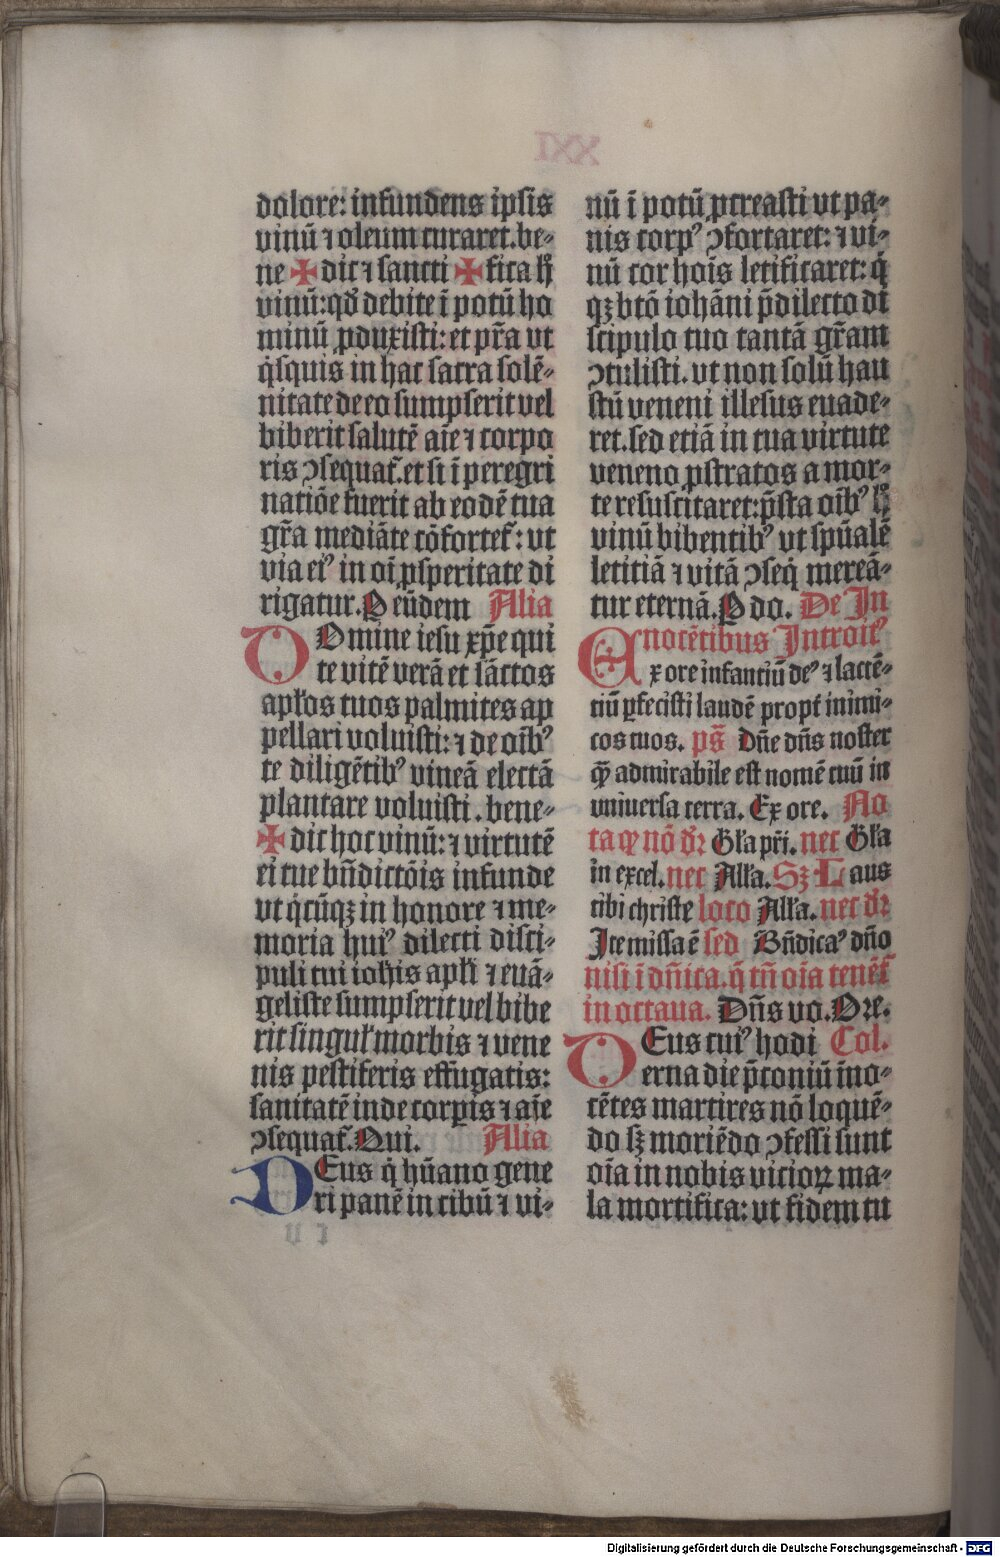 IXX
dolore: infundens ipsis
vinū ⁊ oleum curaret. be⸗
ne ✠ dic ⁊ sancti ✠ fica h̄
vinū: qd̄ debite ī potū ho
minū ꝓduxisti: et pr̄a vt
q̇squis in hac sacra solē⸗
nitate de eo sumpserit vel
biberit salutē aīe ⁊ corpo
ris ꝯsequat᷑. et si ī peregri
natiōe fuerit ab eodē tua
gr̄a mediāte cōfortet᷑: vt
via eiꝰ in oī ꝓsperitate di
rigatur. P eūdem Alia
DOmine iesu xp̄e qui
te vitē verā et sāctos
apl̄os tuos palmites ap
pellari voluisti: ⁊ de oībꝰ
te diligētibꝰ vineā electā
plantare voluisti. bene⸗
✠ dic hoc vinū: ⁊ virtutē
ei tue bn̄dictōis infunde
vt q̇cūqꝫ in honore ⁊ me⸗
moria huiꝰ dilecti disci⸗
puli tui ioh̄is apl̄i ⁊ euā⸗
geliste sumpserit vel bibe
rit singul̄ morbis ⁊ vene
nis pestiferis effugatis:
sanitatē inde corpis ⁊ aīe
ꝯsequat᷑. Qui. Alia
DEus q̇ hūano gene
ri panē in cibū ⁊ vi⸗
nū ī potū ꝓcreasti vt pa⸗
nis corpꝰ ꝯfortaret: ⁊ vi⸗
nū cor hoīs letificaret: q̇
qꝫ btō iohāni p̄dilecto di
scipulo tuo tantā gr̄am
ꝯtulisti. vt non solū hau
stū veneni illesus euade⸗
ret. sed etiā in tua virtute
veneno ꝓstratos a mor⸗
te resuscitaret: p̄sta oībꝰ h̄
vinū bibentibꝰ vt spūalē
letitiā ⁊ vitā ꝯseq̇ mereā⸗
tur eternā. P do. De In
nocētibus Introitꝰ
Ex ore infantiū deꝰ ⁊ lactē⸗
tiū ꝑfecisti laudē propt̄ inimi⸗
cos tuos. ps̄ Dn̄e dn̄s noster
qȝ admirabile est nomē tuū in
vniuersa terra. Ex ore. No
ta qȝ nō dr̄ Gl̄a pr̄i. nec Gl̄a
in excel. nec All̄a. Sꝫ Laus
tibi christe loco All̄a. nec dr̄
Ite missa ē sed Bn̄dicaꝰ dn̄o
nisi ī dn̄ica. q̄ tn̄ oīa tenēt᷑
in octaua. Dn̄s vo. Ore.
DEus cuiꝰ hodi Col.
erna die p̄coniū īno⸗
cētes martires nō loquē⸗
do sꝫ moriēdo ꝯfessi sunt
oīa in nobis vicioꝝ ma⸗
la mortifica: vt fidem tu
Digitalisierung gefördert durch die Deutsche Forschungsgemeinschaft - DFG